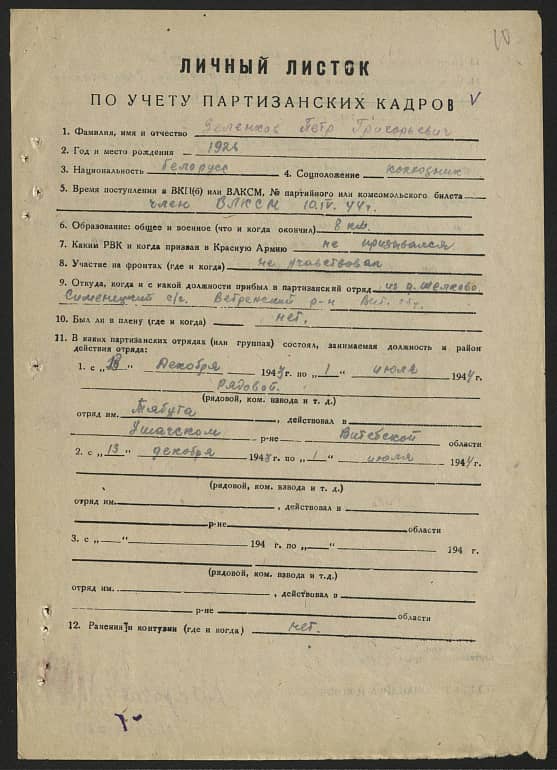 10
ЛИЧНЫЙ ЛИСТОК
ПО УЧЕТУ ПАРТИЗАНСКИХ КАДРОВ V
1. Фамилия, имя и отчество Зеленков Петр Григорьевич
2. Год и место рождения 1926
3. Национальность белорусс 4. Соцположение колхозник
5. Время поступления в ВКП(б) или ВЛКСМ, № партийного или комсомольского билета
член ВЛКСМ 10.IV.44г.
6. Образование: общее и военное (что и когда окончил) 8 кл.
7. Каким РВК и когда призван в Красную Армию не призывался
8. Участие на фронтах (где и когда) не участвовал
9. Откуда, когда и с какой должности прибыл в партизанский отряд из д. Шелково,
с/с. Ветренский р-н Вит. обл.
10. Был ли в плену (где и когда) нет.
11. В каких партизанских отрядах (или группах) состоял, занимаемая должность и район
действия отряда:
1. с „13“ Декабря 1943г. по „1“ июля 1944г.
Рядовой.
(рядовой, ком. взвода и т. д.)
отряд им. Мябута, действовал в
Ушачском р-не Витебской области
2. с „13“ декабря 1943г. по „1“ июля 1944г.
(рядовой, ком. взвода и т. д.)
отряд им., действовал в
р-не области
3. с „ “ 194 г. по „ “ 194 г.
(рядовой, ком. взвода и т.д.)
отряд им., действовал в
р-не области
12. Ранения и контузии (где и когда) нет.